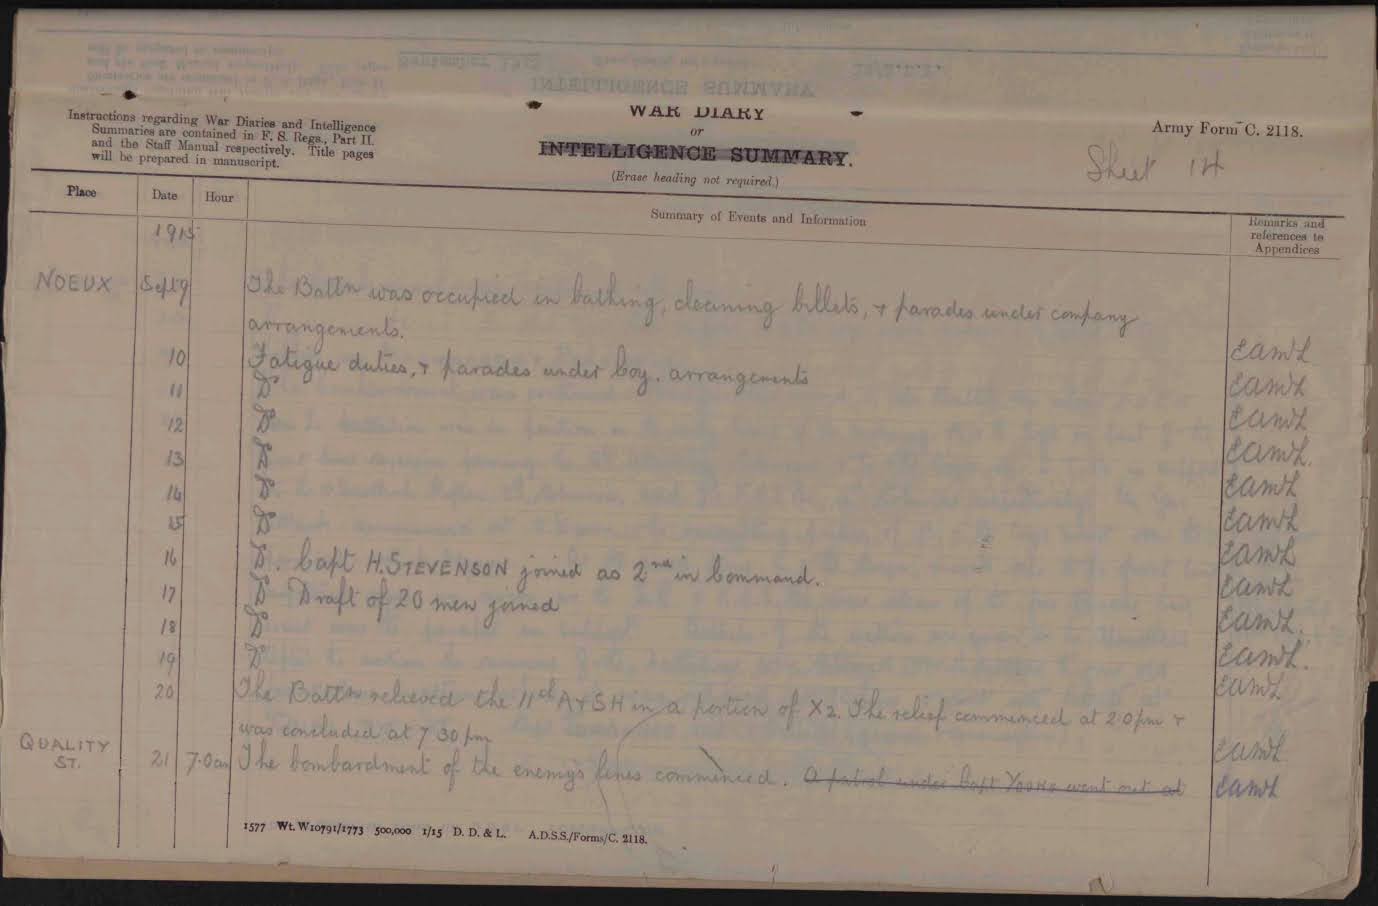 Instructions regarding War Diaries and Intelligence
Summaries are contained in F. S. Regs., Part II.
and the Staff Manual respectively. Title pages
will be prepared in manuscript.
WAR DIARY
or
INTELLIGENCE SUMMARY.
(Erase heading not required.)
Army Form C. 2118.
Sheet 14
Place Date Hour Summary of Events and Information Remarks and
references to
Appendices
1915
NOEUX Sept 9 The Battn was occupied in bathing, cleaning billets, & parades under company
arrangements. EAMWL
10 Fatigue duties, & parades under Coy. arrangements EAMWL
11 Do EAMWL
12 Do EAMWL.
13 Do EAMWL
14 Do EAMWL
15 Do EAMWL
16 Do. Capt H. STEVENSON joined as 2nd in Command. EAMWL
17 Do Draft of 20 men joined EAMWL.
18 Do EAMWL.
19 Do EAMWL
20 The Battn relieved the 11th A & SH in a portion of X2. The relief commenced at 2.0 pm &
was concluded at 7 30 pm EAMWL
QUALITY
ST. 21 7.0 am The bombardment of the enemy's lines commenced. A patrol under Capt went out at EAMWL
1577 Wt. W10791/1773 500,000 1/15 D. D. & L. A.D.S.S./Forms/C. 2118.